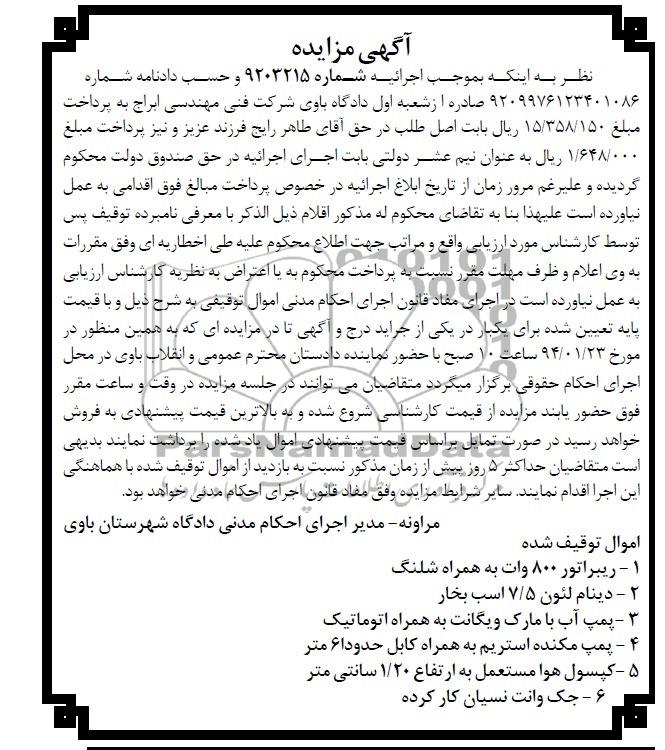 آگهی مزایده
نظر به اینکه بموجب اجرائیه شماره ۹۲۰۳۲۱۵ و حسب دادنامه شماره
۹۲۰۹۹۷۶۱۲۳۴۰۱۰۸۶ صادره ا زشعبه اول دادگاه باوی شرکت فنی مهندسی ابراج به پرداخت
مبلغ ۱۵/۳۵۸/۱۵۰ ریال بابت اصل طلب در حق آقای طاهر رایج فرزند عزیز و نیز پرداخت مبلغ
۱/۶۴۸/۰۰۰ ریال به عنوان نیم عشر دولتی بابت اجرای اجرائیه در حق صندوق دولت محکوم
گردیده و علیرغم مرور زمان از تاریخ ابلاغ اجرائیه در خصوص پرداخت مبالغ فوق اقدامی به عمل
نیاورده است علیهذا بنا به تقاضای محکوم له مذکور اقلام ذیل الذکر با معرفی نامبرده توقیف پس
توسط کارشناس مورد ارزیابی واقع و مراتب جهت اطلاع محکوم علیه طی اخطاریه ای وفق مقررات
به وی اعلام و ظرف مهلت مقرر نسبت به پرداخت محکوم به یا اعتراض به نظریه کارشناس ارزیابی
به عمل نیاورده است در اجرای مفاد قانون اجرای احکام مدنی اموال توقیفی به شرح ذیل و با قیمت
پایه تعیین شده برای یکبار در یکی از جراید درج و آگهی تا در مزایده ای که به همین منظور در
مورخ ۹۴/۰۱/۲۳ ساعت ۱۰ صبح با حضور نماینده دادستان محترم عمومی و انقلاب باوی در محل
اجرای احکام حقوقی برگزار میگردد متقاضیان می توانند در جلسه مزایده در وقت و ساعت مقرر
فوق حضور یابند مزایده از قیمت کارشناسی شروع شده و به بالاترین قیمت پیشنهادی به فروش
خواهد رسید در صورت تمایل براساس قیمت پیشنهادی اموال یاد شده را برداشت نمایند بدیهی
است متقاضیان حداکثر ۵ روز پیش از زمان مذکور نسبت به بازدید از اموال توقیف شده با هماهنگی
این اجرا اقدام نمایند. سایر شرایط مزایده وفق مفاد قانون اجرای احکام مدنی خواهد بود.
مراونه- مدیر اجرای احکام مدنی دادگاه شهرستان باوی
اموال توقیف شده
۱ - ریبراتور ۸۰۰ وات به همراه شلنگ
۲ - دینام لئون ۷/۵ اسب بخار
۳ -پمپ آب با مارک ویگانت به همراه اتوماتیک
۴ - پمپ مکنده استریم به همراه کابل حدودا۶ متر
۵ -کپسول هوا مستعمل به ارتفاع ۱/۲۰ سانتی متر
۶ - جک وانت نسیان کار کرده
ParsNamadData